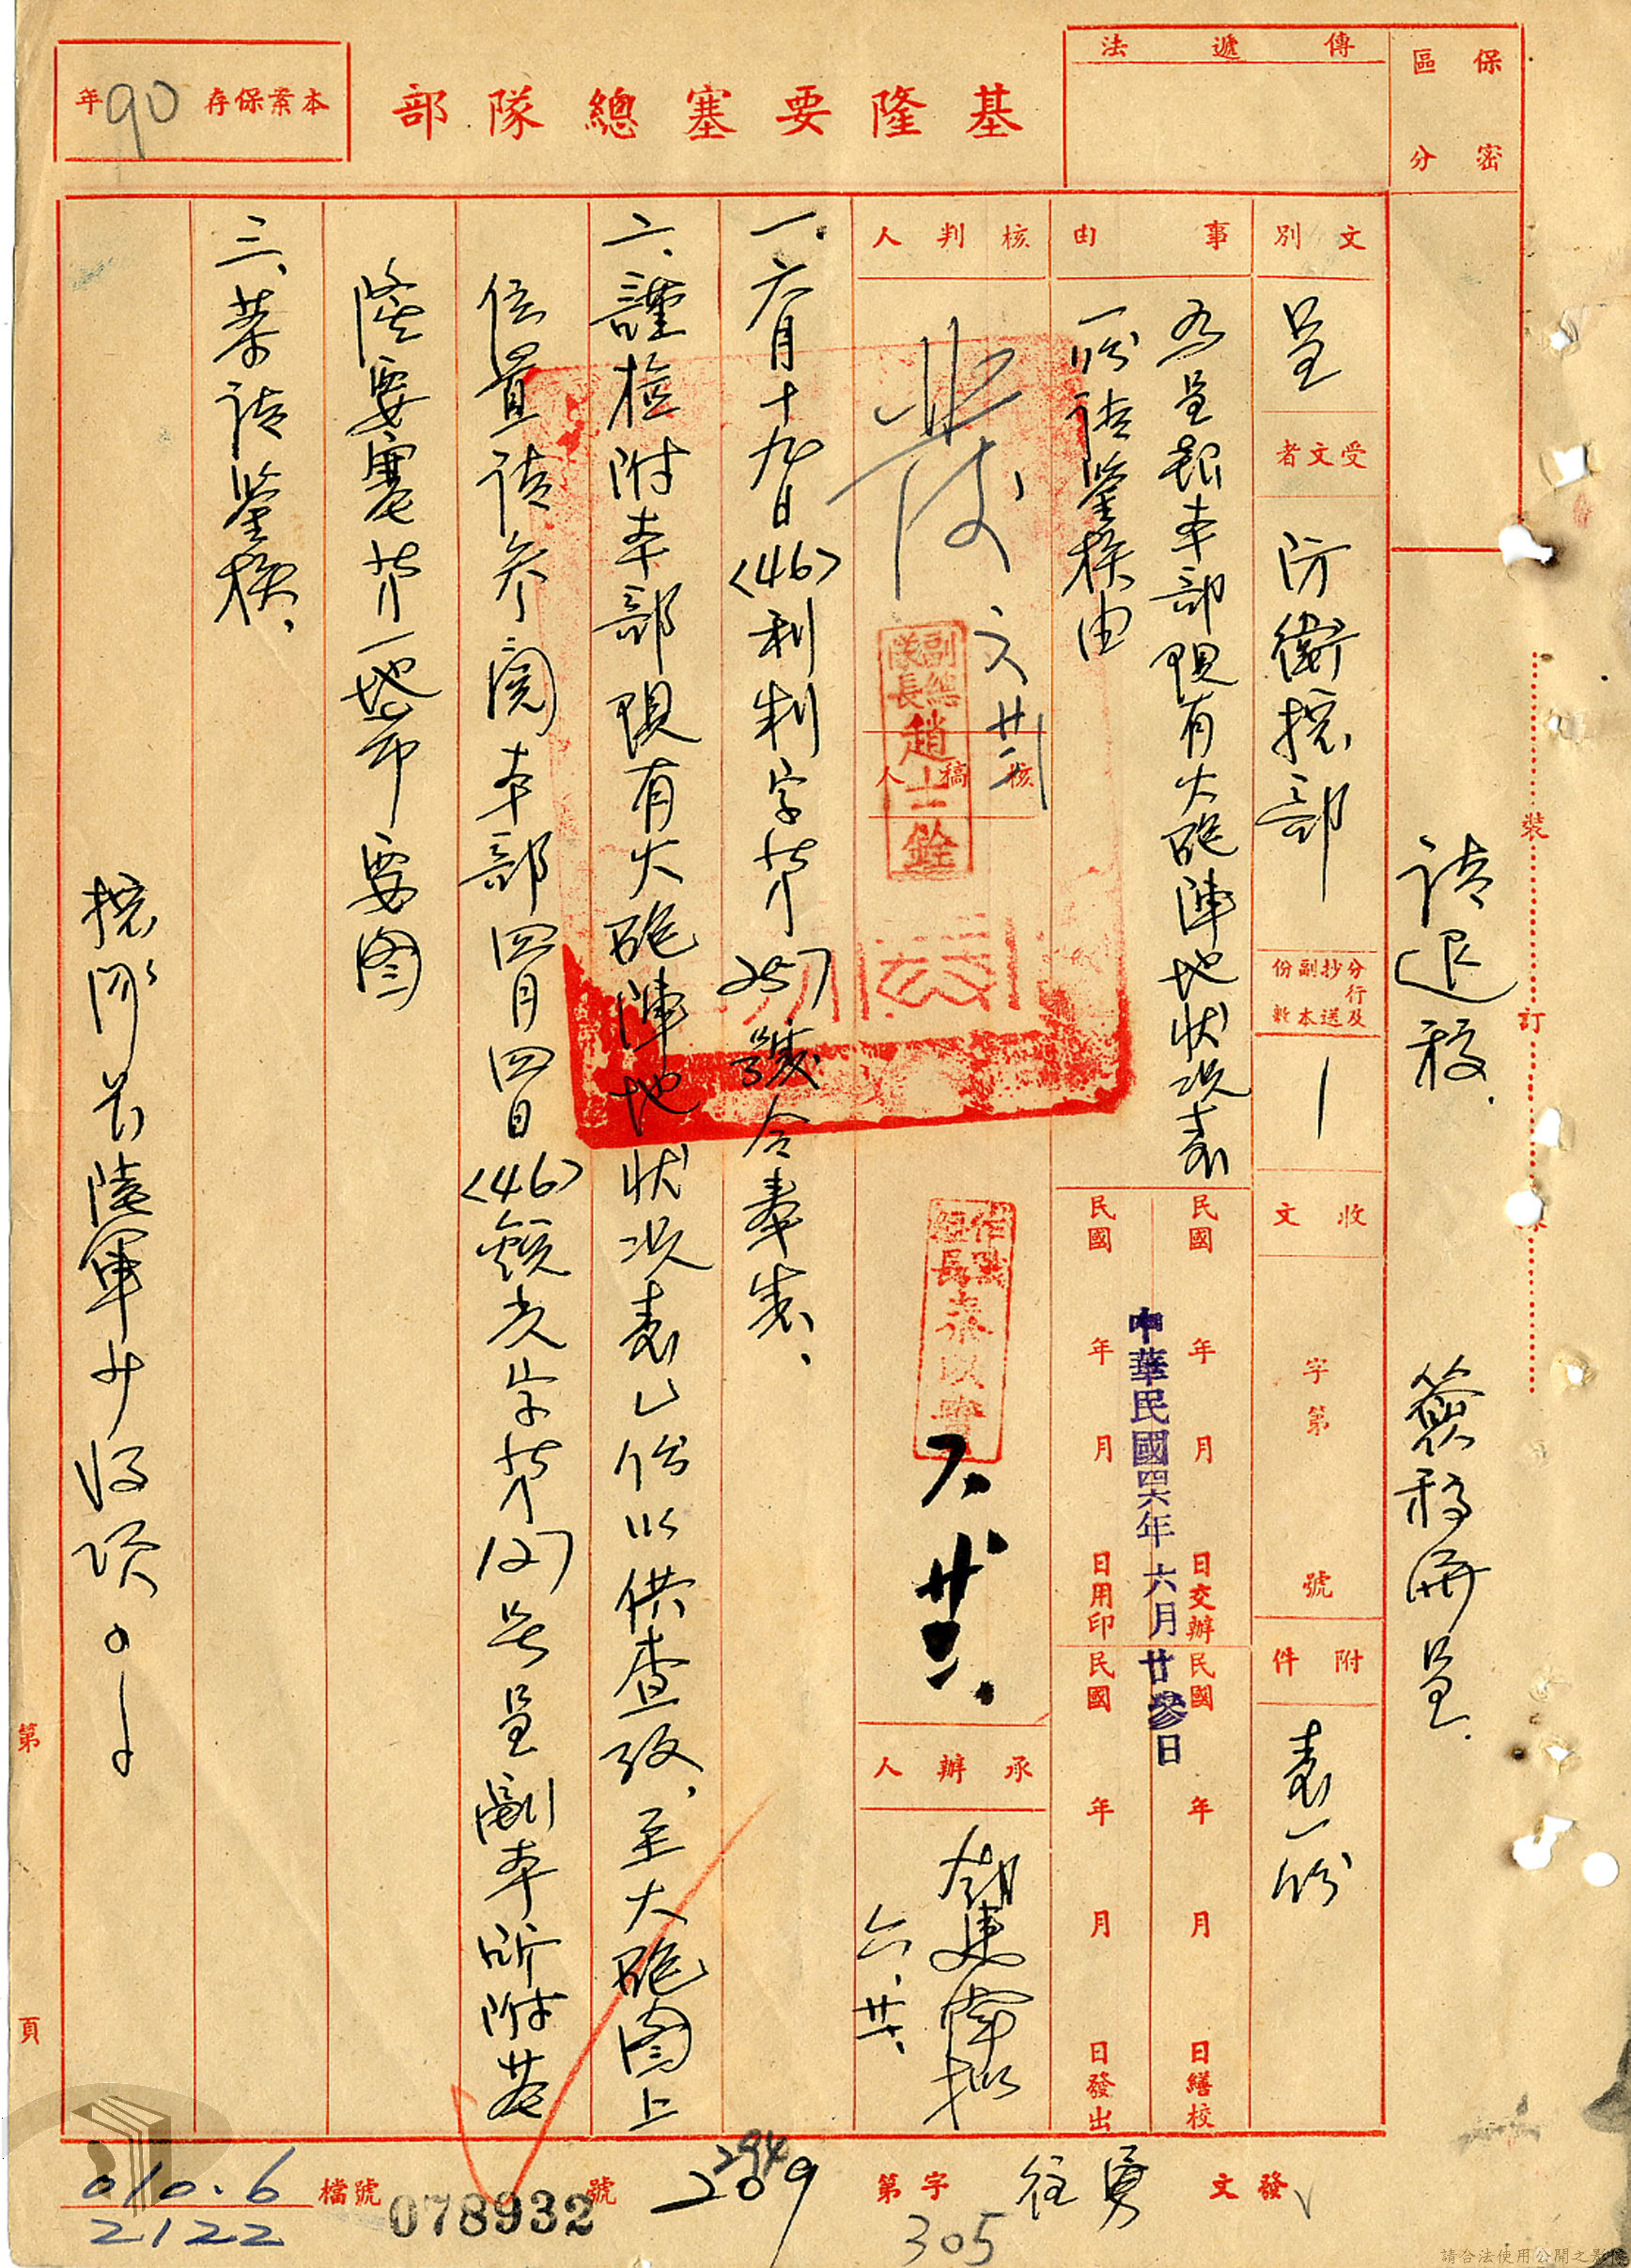 保密
區分
傳遞法
基隆要塞總隊部
本案保存90年
請退稿.
簽稿併呈.
文別
呈
受文者
防衛捴部
分行及抄送副本份數
1
收文
字第
號
附件
表一份
事由
為呈報本部現有火砲陣地狀況表
一份請鑒核由
民國
年
月
日交辦
民國
年
月
日繕校
中華民國四六年六月廿參日
民國
年
月
日用印
民國
年
月
日發出
核判人
發
六廿三
核稿人
副總隊長趙士銓
作戰組長
六.廿二.
承辦人
六.廿.
一.六月十九日<46>利制字第257號令奉悉、
二、謹檢附本部現有火砲陣地狀況表乙份以供查攷、至大砲圖上
位置請參閱本部四月四日<46>字第127号呈副本所附基
隆要塞兵力部署要圖
三、恭請鑒核、
捴隊長陸軍少將項○○
裝
訂
線
第
頁
發文
字第
209
294
305
號
078932
檔號
010.6
2122
請合法使用公開之影像